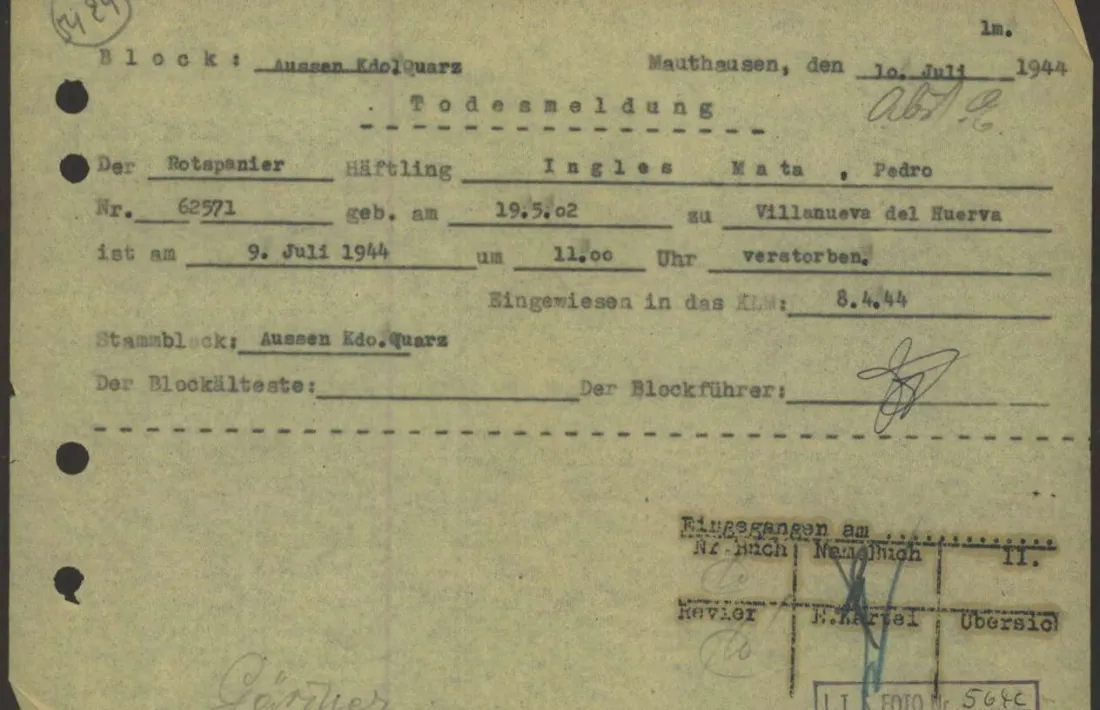 lm.
Block: Aussen Kdo.Quarz Mauthausen, den 10. Juli 1944
Todesmeldung
Der Rotspanier Häftling Ingles Mata, Pedro
Nr. 62571 geb. am 19.5.02 zu Villanueva del Huerva
ist am 9. Juli 1944 um 11.00 Uhr verstorben.
Eingewiesen in das KLM: 8.4.44
Stammblock: Aussen Kdo.Quarz
Der Blockälteste: Der Blockführer:
Eingegangen am .............
Nr.Buch II.
Revier Übersic
Gärtner
FOTO Nr.